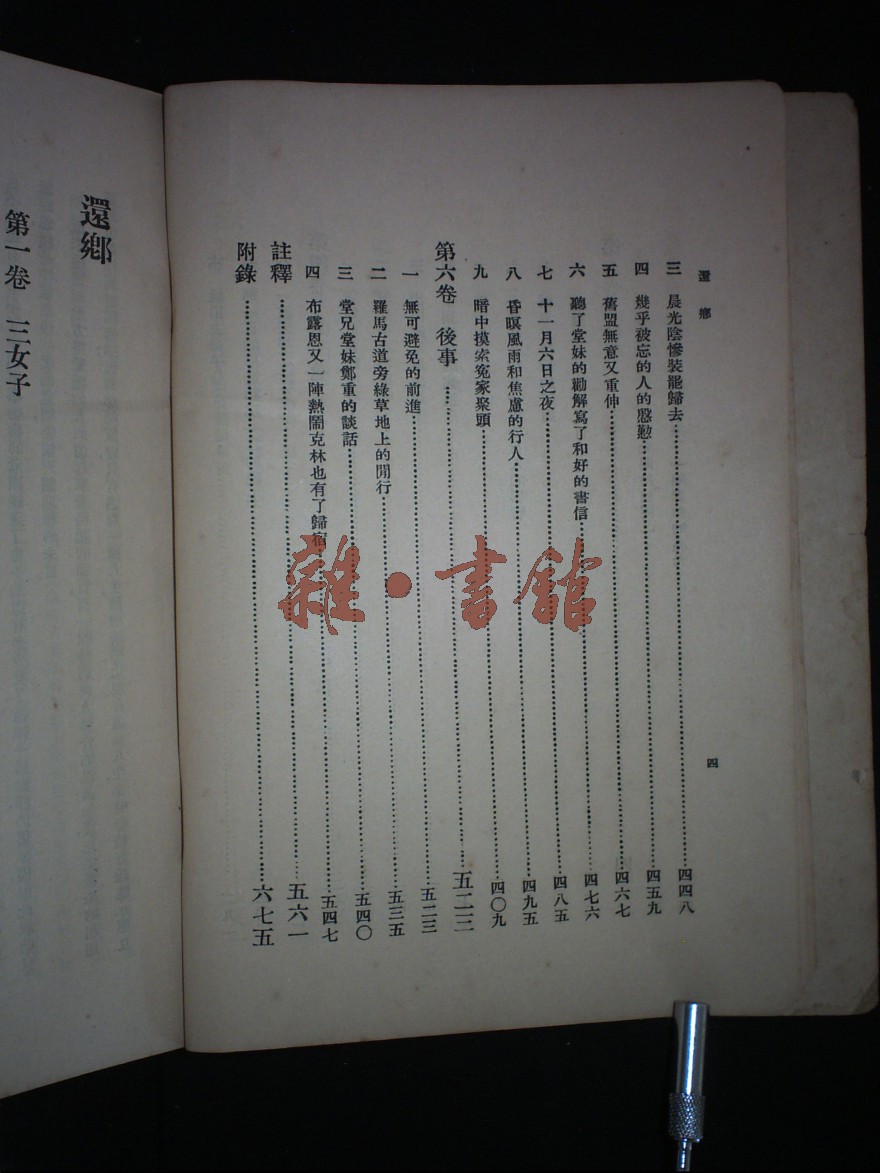 還鄉
四
三 晨光陰慘裝罷歸去……四四八
四 幾乎被忘的人的慇懃……四五九
五 舊盟無意又重伸……四六七
六 聽了堂妹的勸解寫了和好的書信……四七六
七 十一月六日之夜……四八五
八 昏暝風雨和焦慮的行人……四九五
九 暗中摸索冤家聚頭……四〇九
第六卷 後事……五二三
一 無可避免的前進……五二三
二 羅馬古道旁綠草地上的閒行……五三五
三 堂兄堂妹鄭重的談話……五四〇
四 布露恩又一陣熱鬧克林也有了歸宿……五四七
註釋……五六一
附錄……六七五
還鄉
第一卷 三女子
雜·書館